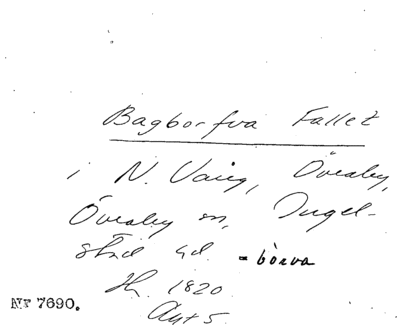 Bagborfva Fallet
i N. Vairg, Övraby,
Övraby sn, Ingel-
stad hd. = bòrva
Jh. 1820
Akt 5.
NF 7690.